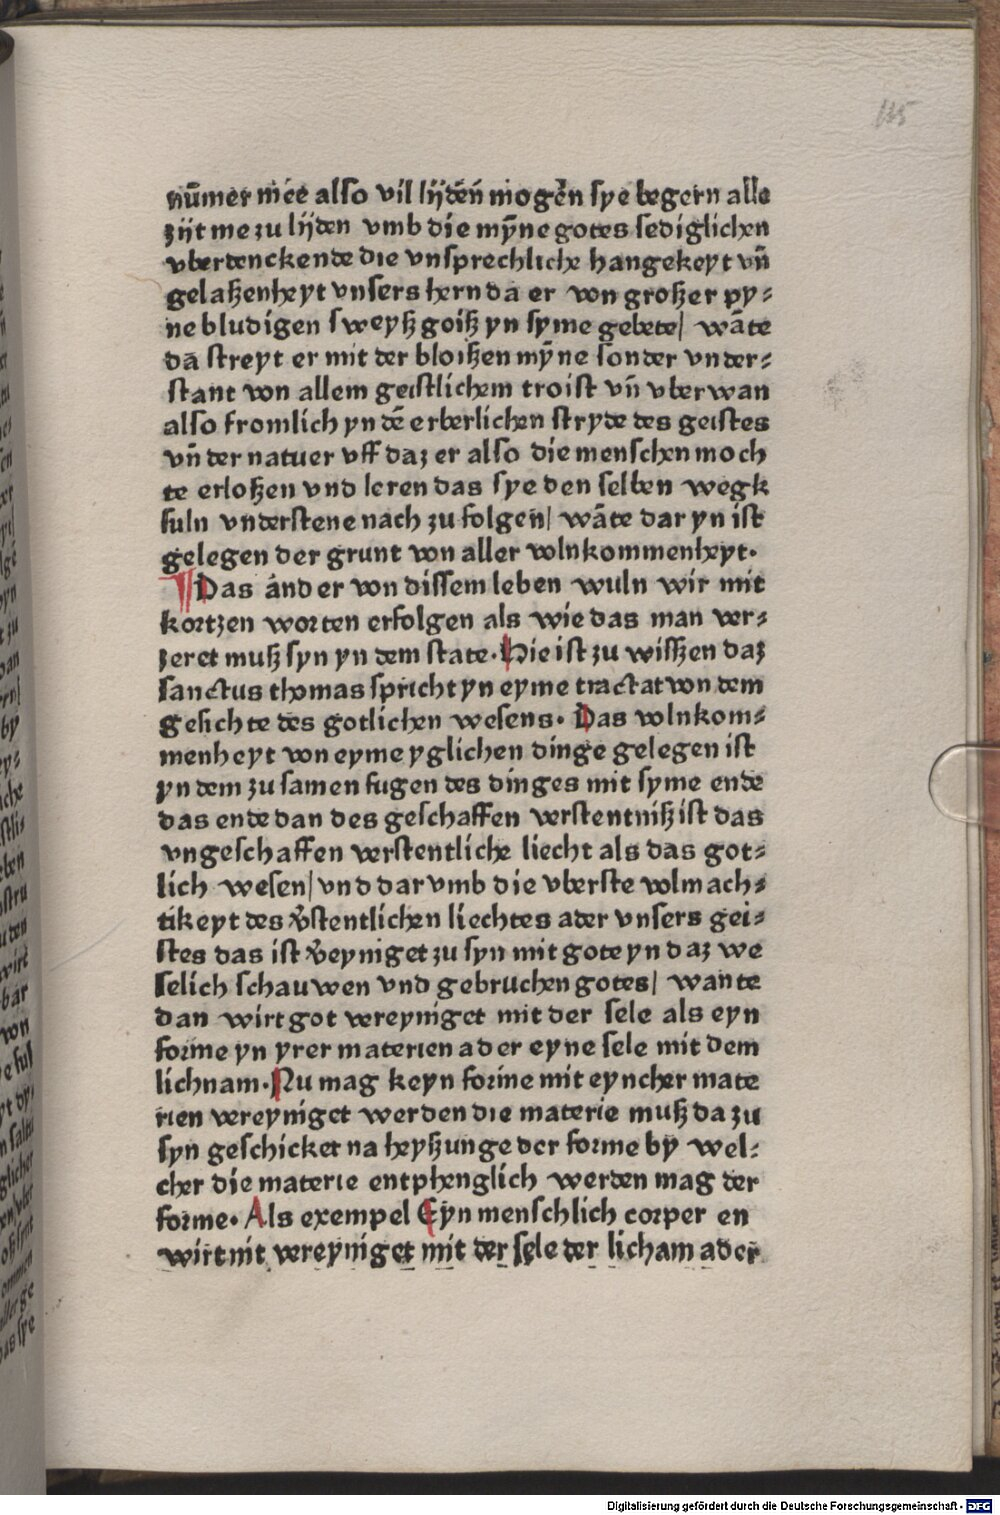 115
nūmer mee also vil lijdēn mogēn sye begern alle
zijt me zu lijden vmb die mȳne gotes sediglichen
vberdenckende die vnsprechliche hangekeyt vn̄
gelaßenheyt vnsers hern da er von großer py⸗
ne bludigen sweyß goiß yn syme gebete/ wāte
dā streyt er mit der bloißen mȳne sonder vnder⸗
stant von allem geistlichem troist vn̄ vberwan
also fromlich yn dē erberlichen stryde des geistes
vn̄ der natuer vff daz er also die menschen moch
te erloßen vnd leren das sye den selben wegk
suln vnderstene nach zu folgen/ wāte dar yn ist
gelegen der grunt von aller volnkommenheyt.
¶ Das ander von dissem leben wuln wir mit
kortzen worten erfolgen als wie das man ver⸗
zeret muß syn yn dem state. Hie ist zu wissßen daz
sanctus thomas spricht yn eyme tractat von dem
gesichte des gotlichen wesens. Das volnkom⸗
menheyt von eyme yglichen dinge gelegen ist
yn dem zu samen fugen des dinges mit syme ende
das ende dan des geschaffen verstentniß ist das
vngeschaffen verstentliche liecht als das got⸗
lich wesen/ vnd dar vmb die vberste volmach⸗
tikeyt des v̄stentlichen liechtes ader vnsers gei⸗
stes das ist v̄eyniget zu syn mit gote yn daz we
selich schauwen vnd gebruchen gotes/ wante
dan wirt got vereyniget mit der sele als eyn
forme yn yrer materien ader eyne sele mit dem
lichnam. Nu mag keyn forme mit eyncher mate
rien vereyniget werden die materie muß da zu
syn geschicket na heyßunge der forme by wel⸗
cher die materie entphenglich werden mag der
forme. Als exempel Eyn menschlich corper en
wirt nit vereyniget mit der sele der licham ader
Digitalisierung gefördert durch die Deutsche Forschungsgemeinschaft - DFG